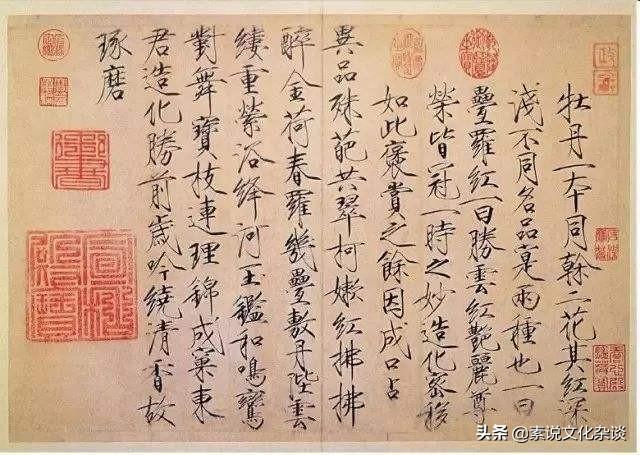 牡丹一本同幹二花其紅深
淺不同名品寔兩種也一曰
疊羅紅一曰勝雲紅艷麗尊
榮皆冠一時之妙造化密移
如此褒賞之餘因成口占
異品殊葩共翠柯嫩紅拂拂
醉金荷春羅幾疊敷丹陛雲
縷重縈浴絳河玉鑑和鳴鸞
對舞寶枝連理錦成窠東
君造化勝前歲吟繞清香故
琢磨
头条 @素说文化杂谈